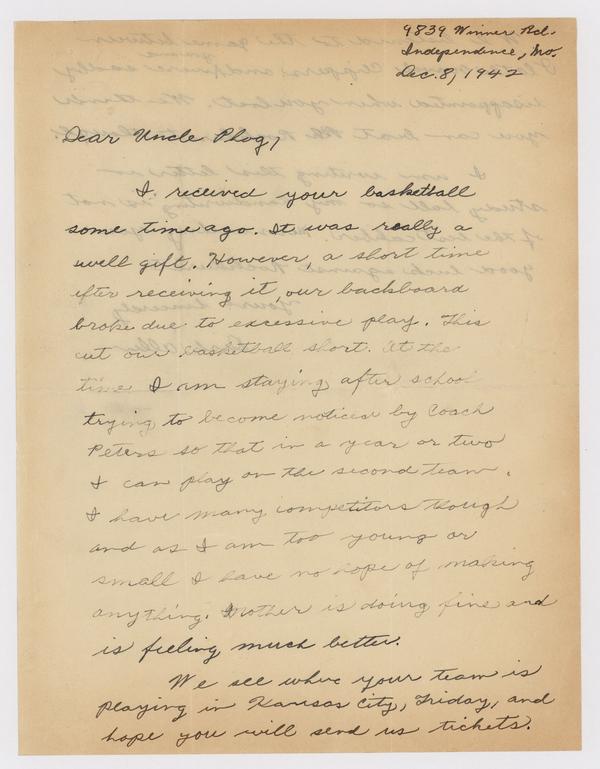 9839 Winner Rd.
Independence, Mo.
Dec. 8, 1942
Dear Uncle Phog,
I received your basketball
some time ago. It was really a
swell gift. However, a short time
after receiving it, our backboard
broke due to excessive play. This
cut our basketball short. At the
time I am staying after school
trying to become noticed by Coach
Peters so that in a year or two
I can play on the second team.
I have many competitors though
and as I am too young or
small I have no hope of making
anything. Mother is doing fine and
is feeling much better.
We see where your team is
playing in Kansas City, Friday, and
hope you will send us tickets.